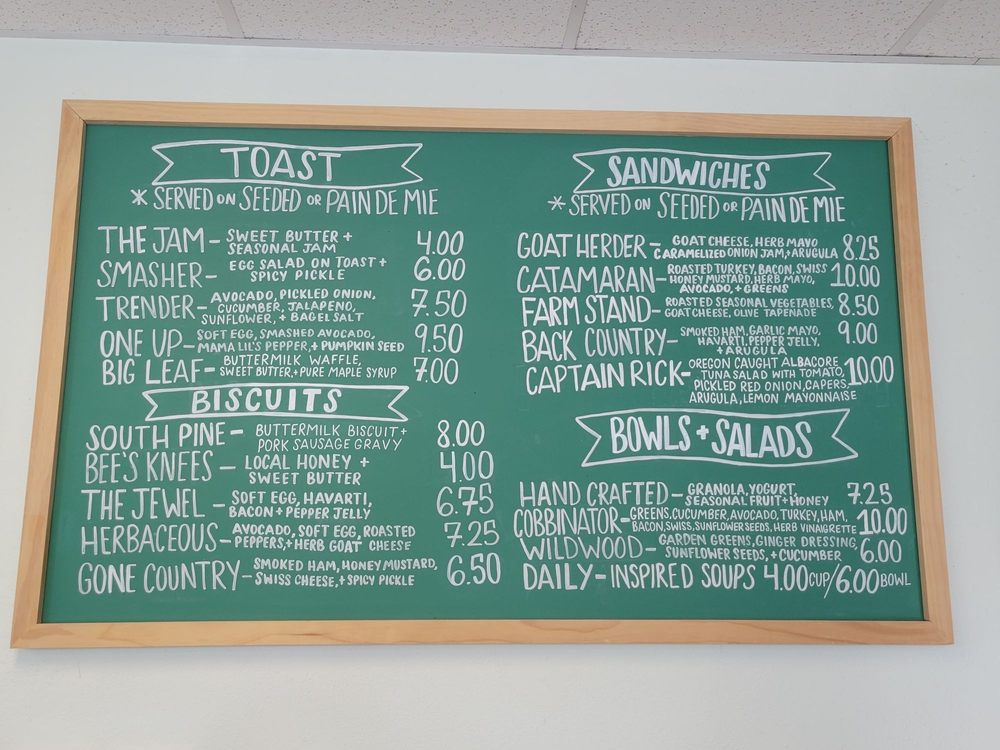 TOAST
*SERVED ON SEEDED OR PAIN DE MIE
THE JAM - SWEET BUTTER + 4.00
SEASONAL JAM
SMASHER - EGG SALAD ON TOAST + 6.00
SPICY PICKLE
TRENDER - AVOCADO, PICKLED ONION, 7.50
CUCUMBER, JALAPENO,
SUNFLOWER, + BAGEL SALT
ONE UP - SOFT EGG, SMASHED AVOCADO, 9.50
MAMA LIL'S PEPPER, + PUMPKIN SEED
BIG LEAF - BUTTERMILK WAFFLE, 7.00
SWEET BUTTER, + PURE MAPLE SYRUP
BISCUITS
SOUTH PINE - BUTTERMILK BISCUIT + 8.00
PORK SAUSAGE GRAVY
BEE'S KNEES - LOCAL HONEY + 4.00
SWEET BUTTER
THE JEWEL - SOFT EGG, HAVARTI, 6.75
BACON + PEPPER JELLY
HERBACEOUS - AVOCADO, SOFT EGG, ROASTED 7.25
PEPPERS, + HERB GOAT CHEESE
GONE COUNTRY - SMOKED HAM, HONEY MUSTARD, 6.50
SWISS CHEESE, + SPICY PICKLE
SANDWICHES
*SERVED ON SEEDED OR PAIN DE MIE
GOAT HERDER - GOAT CHEESE, HERB MAYO 8.25
CARAMELIZED ONION JAM, + ARUGULA
CATAMARAN - ROASTED TURKEY, BACON, SWISS 10.00
HONEY MUSTARD, HERB MAYO,
AVOCADO, + GREENS
FARM STAND - ROASTED SEASONAL VEGETABLES, 8.50
GOAT CHEESE, OLIVE TAPENADE
BACK COUNTRY - SMOKED HAM, GARLIC MAYO, 9.00
HAVARTI, PEPPER JELLY,
+ ARUGULA
CAPTAIN RICK - OREGON CAUGHT ALBACORE 10.00
TUNA SALAD WITH TOMATO,
PICKLED RED ONION, CAPERS,
ARUGULA, LEMON MAYONNAISE
BOWLS + SALADS
HAND CRAFTED - GRANOLA, YOGURT, 7.25
SEASONAL FRUIT + HONEY
COBBINATOR - GREENS, CUCUMBER, AVOCADO, TURKEY, HAM, 10.00
BACON, SWISS, SUNFLOWER SEEDS, HERB VINAIGRETTE
WILDWOOD - GARDEN GREENS, GINGER DRESSING, 6.00
SUNFLOWER SEEDS, + CUCUMBER
DAILY - INSPIRED SOUPS 4.00 CUP/6.00 BOWL